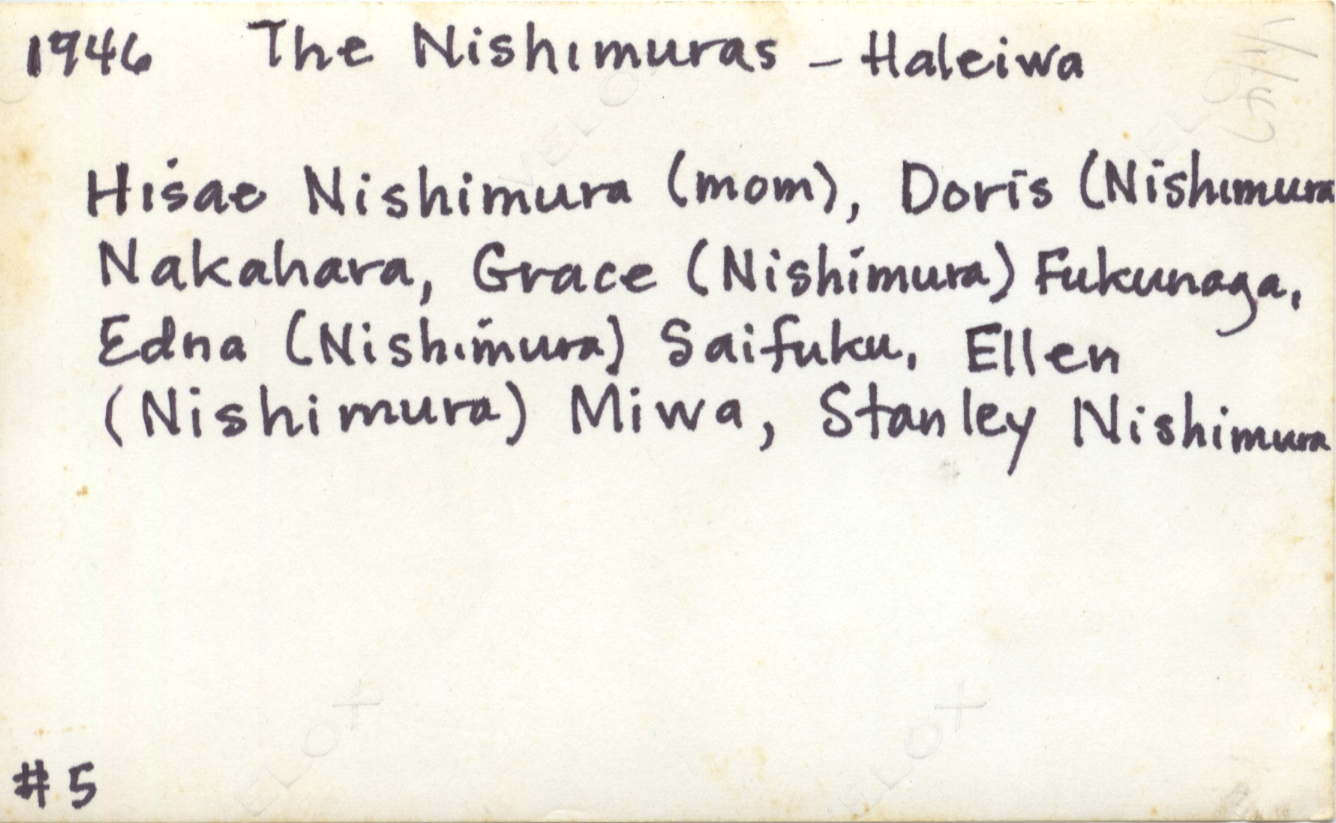 1946 The Nishimuras – Haleiwa
Hisae Nishimura (mom), Doris (Nishimura
Nakahara, Grace (Nishimura) Fukunaga,
Edna (Nishimura) Saifuku, Ellen
(Nishimura) Miwa, Stanley Nishimura
#5
VELOX
VELOX
VELOX